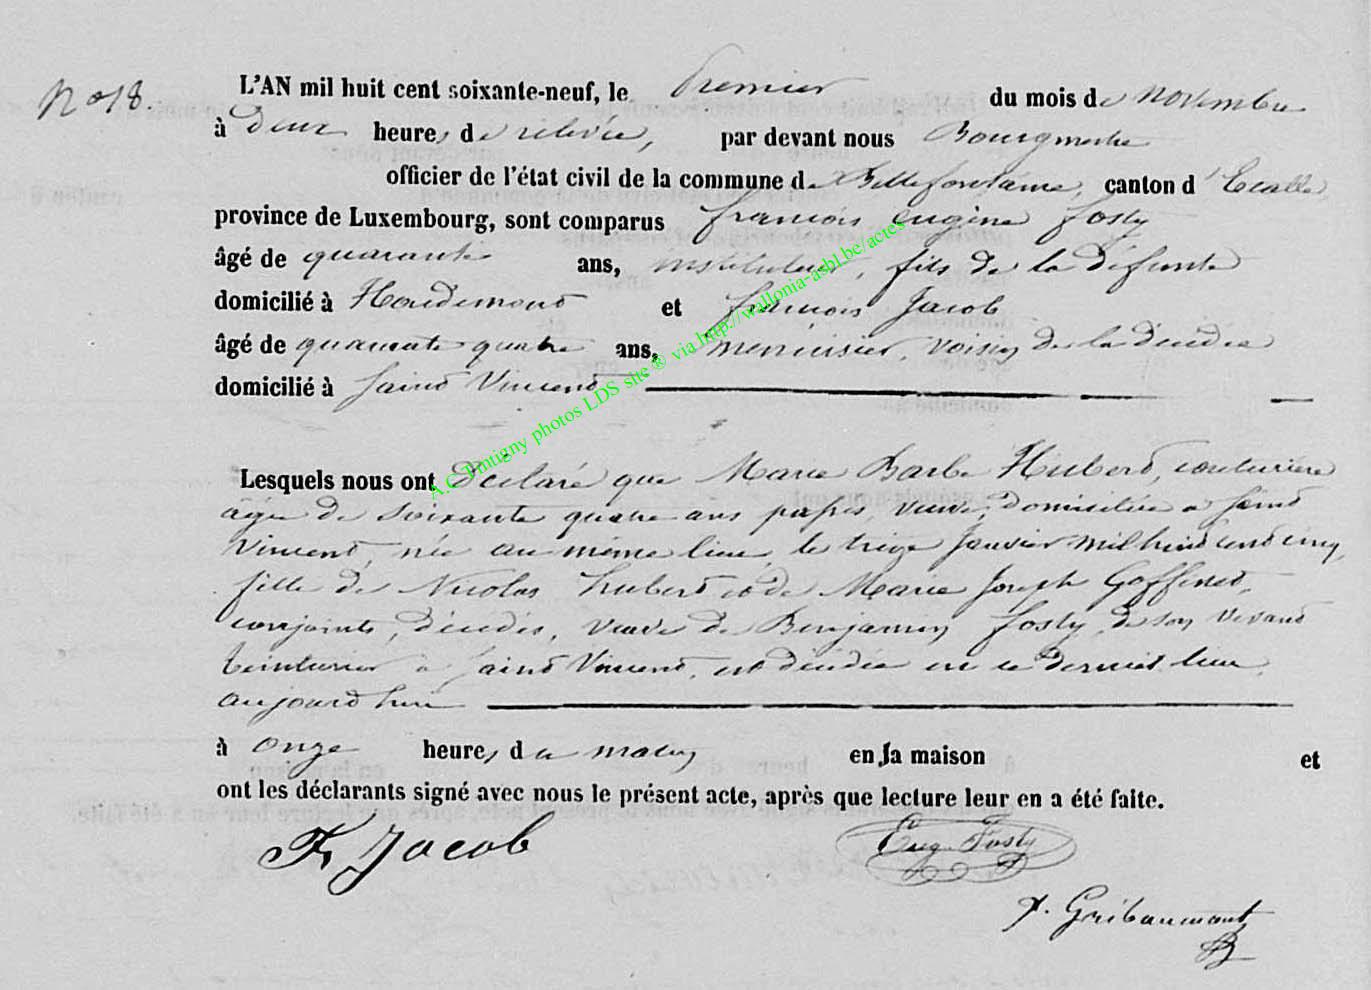 N° 18.
L'AN mil huit cent soixante-neuf, le Premier du mois de Novembre
à deux heures de relevée, par devant nous Bourgmestre
officier de l'état civil de la commune de Bellefontaine, canton d'Etalle,
province de Luxembourg, sont comparus françois eugène fosty
âgé de quarante ans, instituteur, fils de la défunte
domicilié à Houdemont et françois Jacob
âgé de quarante quatre ans, menuisier, voisin de la décédée
domicilié à Saint Vincent
Lesquels nous ont déclaré que Marie Barbe Hubert, couturière
âgée de soixante quatre ans passés, veuve, domiciliée à Saint
Vincent, née au même lieu, le treize Janvier mil huit cent cinq,
fille de Nicolas hubert et de Marie Joseph Goffinet,
conjoints, décédés, veuve de Benjamin fosty, de son vivant
teinturier à Saint Vincent, est décédée en ce dernier lieu,
aujourd'hui
à onze heures du matin en sa maison et
ont les déclarants signé avec nous le présent acte, après que lecture leur en a été faite.
Fr Jacob Eug. Fosty
Gribaumont
A.C. Tintigny photos LDS site ® via http://wallonia-asbl.be/actes